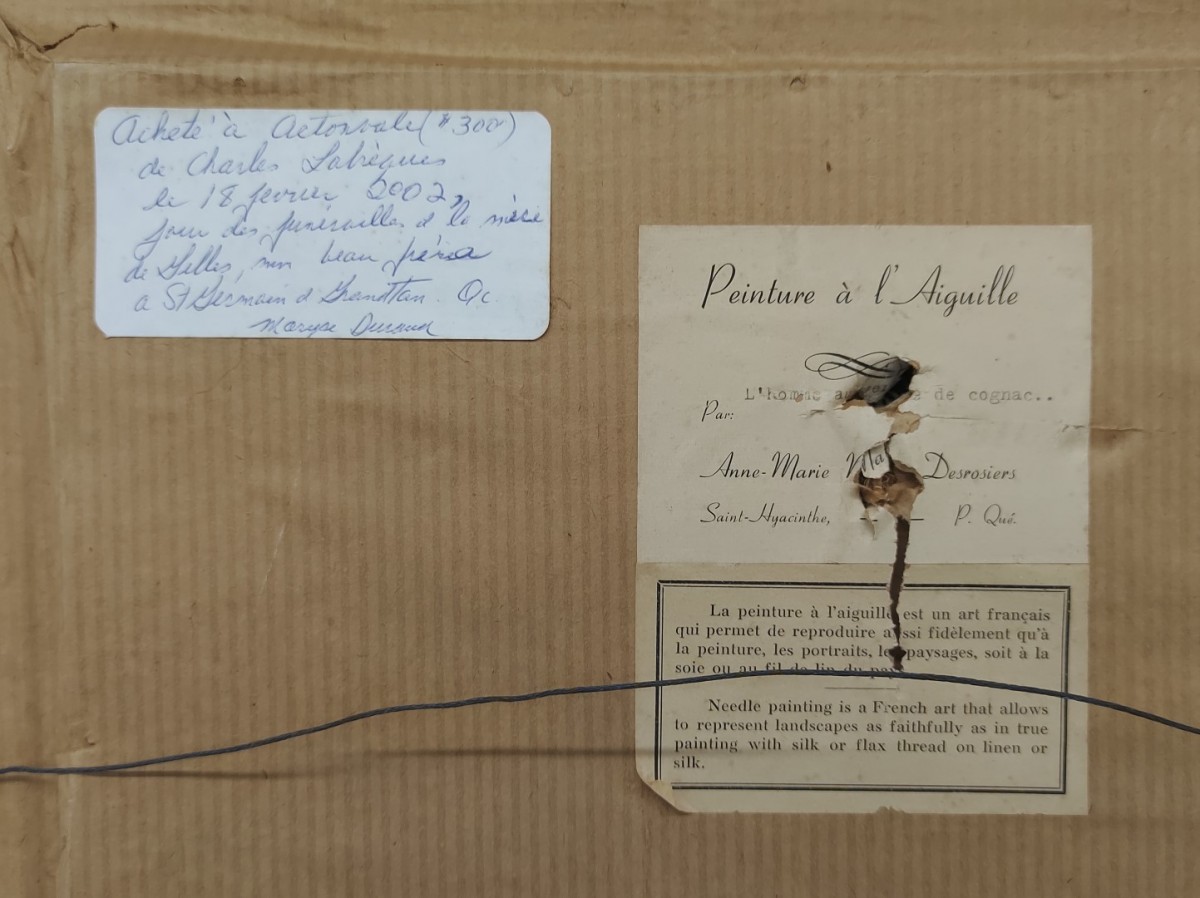 Acheté à Actonvale ($300)
de Charles Labrèques
le 18 février 2002,
jour des funérailles d la mère
de Gilles, mon beau frère
a St Germain d Grandttan. Qc
Maryse Durand
Peinture à l'Aiguille
L'homme de cognac..
Par:
Anne-Marie Desrosiers
Saint-Hyacinthe, P. Qué.
La peinture à l'aiguille est un art français
qui permet de reproduire aussi fidèlement qu'à
la peinture, les portraits, les paysages, soit à la
soie ou au fil de lin du pays
Needle painting is a French art that allows
to represent landscapes as faithfully as in true
painting with silk or flax thread on linen or
silk.